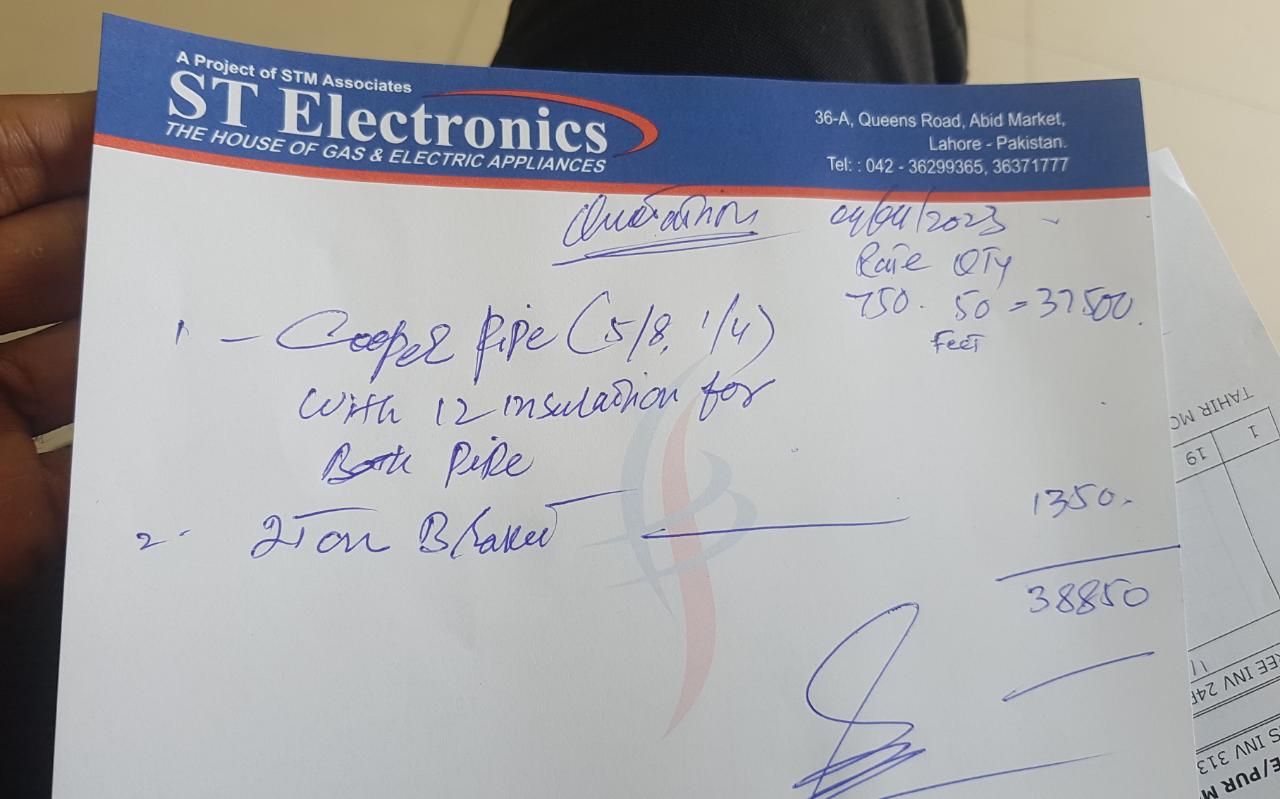 A Project of STM Associates
ST Electronics
THE HOUSE OF GAS & ELECTRIC APPLIANCES
36-A, Queens Road, Abid Market,
Lahore - Pakistan.
Tel: : 042 - 36299365, 36371777
Quotation 04/04/2023
Rate QTY
750. 50 = 37500.
Feet
1 - Cooper Pipe (5/8, 1/4)
with 12 insulation for
Both Pipe
2- 2Ton Braket 1350.
38850
TAHIR MO
1
19
REE INV 24F
S INV 313
E/PUR M